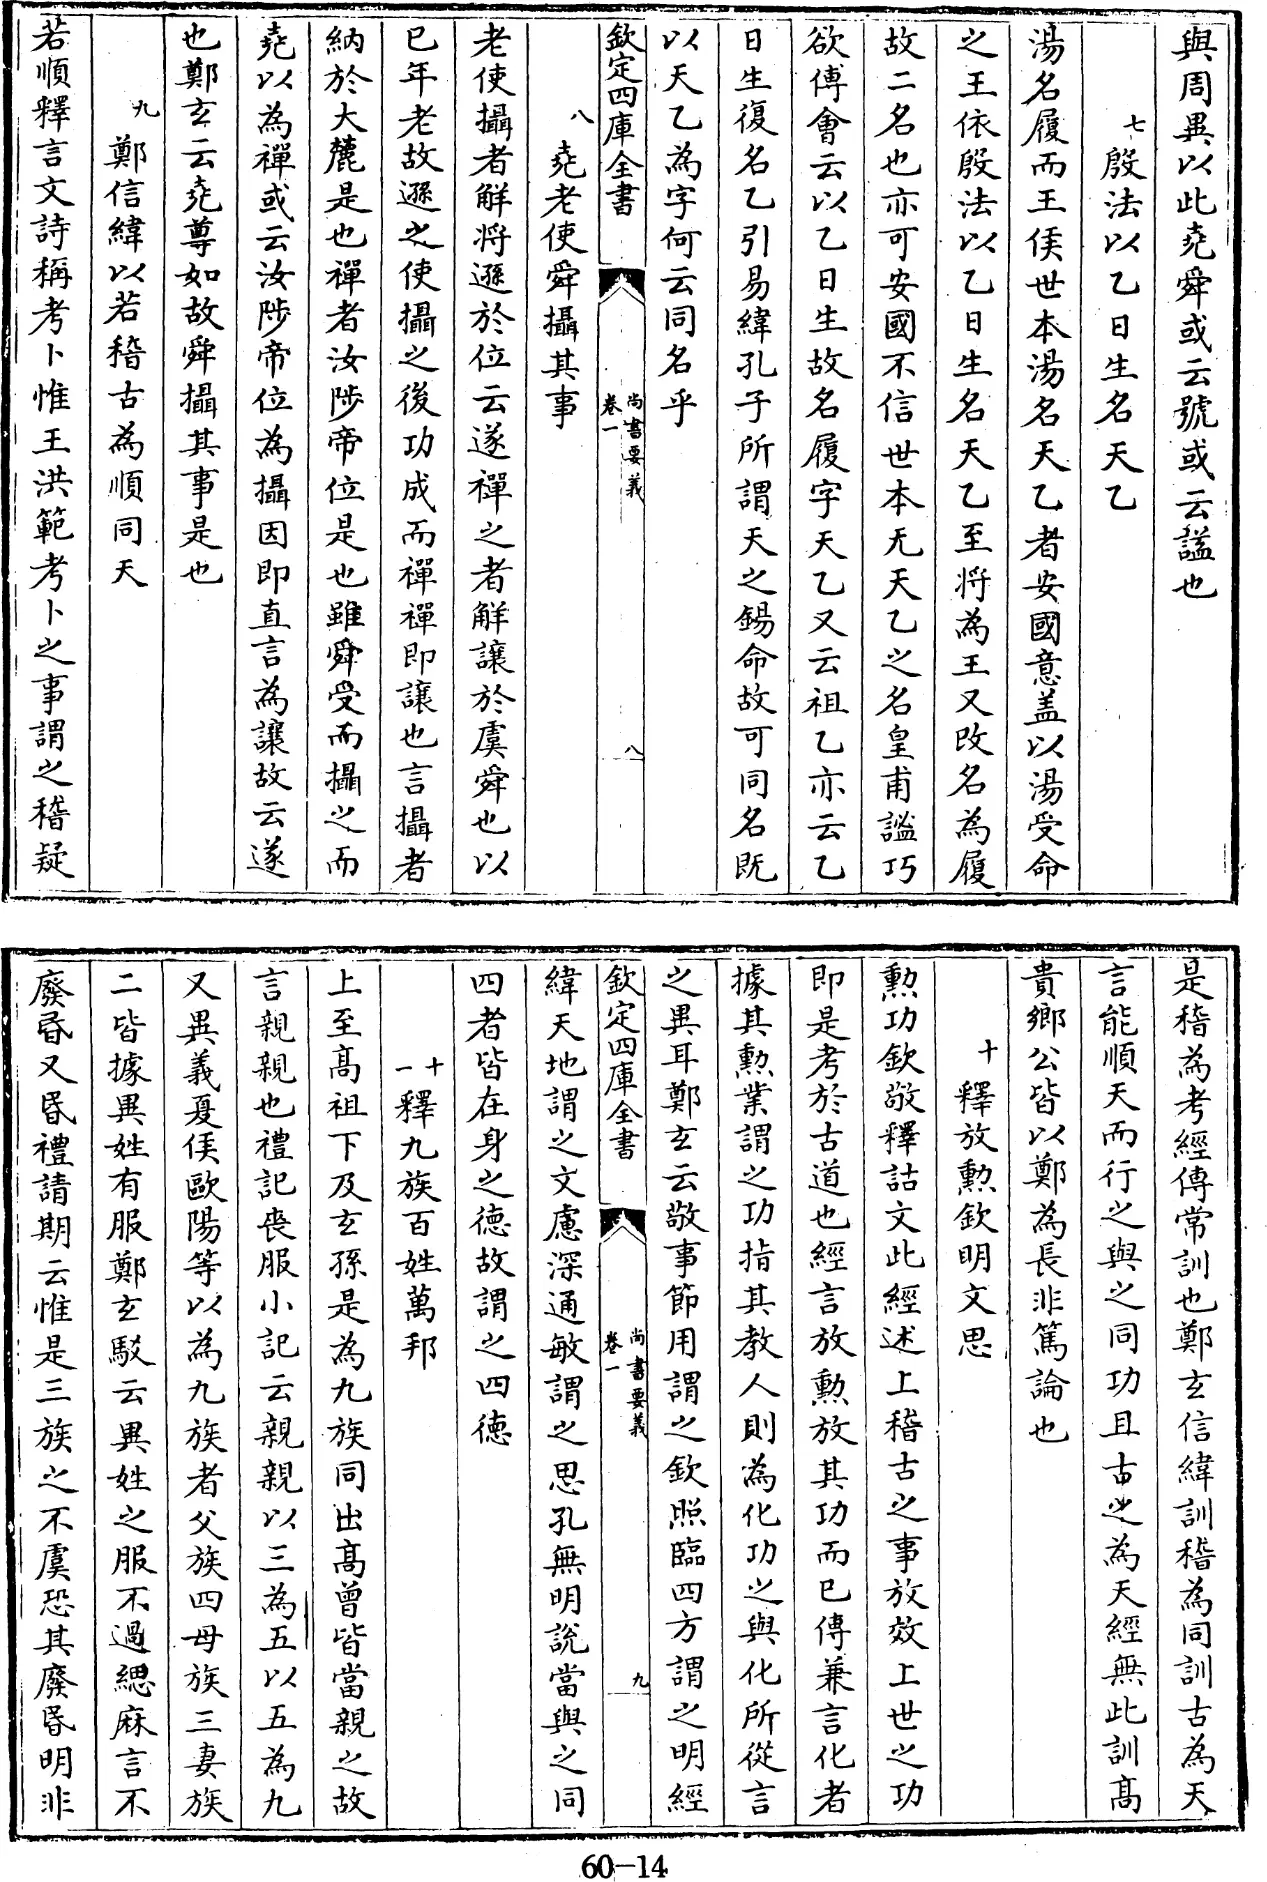 與周異以此堯舜或云號或云謚也
七 殷法以乙日生名天乙
湯名履而王侯世本湯名天乙者安國意盖以湯受命
之王依殷法以乙日生名天乙至将為王又改名為履
故二名也亦可安國不信世本无天乙之名皇甫謐巧
欲傅會云以乙日生故名履字天乙又云祖乙亦云乙
日生復名乙引易緯孔子所謂天之錫命故可同名既
以天乙為字何云同名乎
欽定四庫全書 尚書要義 卷一 八
八 堯老使舜攝其事
老使攝者解将遜於位云遂禪之者解讓於虞舜也以
已年老故遜之使攝之後功成而禪禪即讓也言攝者
納於大麓是也禪者汝陟帝位是也雖舜受而攝之而
堯以為禪或云汝陟帝位為攝因即直言為讓故云遂
也鄭玄云堯尊如故舜攝其事是也
九 鄭信緯以若稽古為順同天
若順釋言文詩稱考卜惟王洪範考卜之事謂之稽疑
是稽為考經傳常訓也鄭玄信緯訓稽為同訓古為天
言能順天而行之與之同功且古之為天經無此訓髙
貴鄉公皆以鄭為長非篤論也
十 釋放勲欽明文思
勲功欽敬釋詁文此經述上稽古之事放效上世之功
即是考於古道也經言放勲放其功而已傳兼言化者
據其勲業謂之功指其教人則為化功之與化所從言
之異耳鄭玄云敬事節用謂之欽照臨四方謂之明經
欽定四庫全書 尚書要義 卷一 九
緯天地謂之文慮深通敏謂之思孔無明說當與之同
四者皆在身之德故謂之四德
十一 釋九族百姓萬邦
上至髙祖下及玄孫是為九族同出髙曾皆當親之故
言親親也禮記喪服小記云親親以三為五以五為九
又異義夏侯歐陽等以為九族者父族四母族三妻族
二皆據異姓有服鄭玄駁云異姓之服不過緦麻言不
廢昏又昬禮請期云惟是三族之不虞恐其廢昬明非
60-14